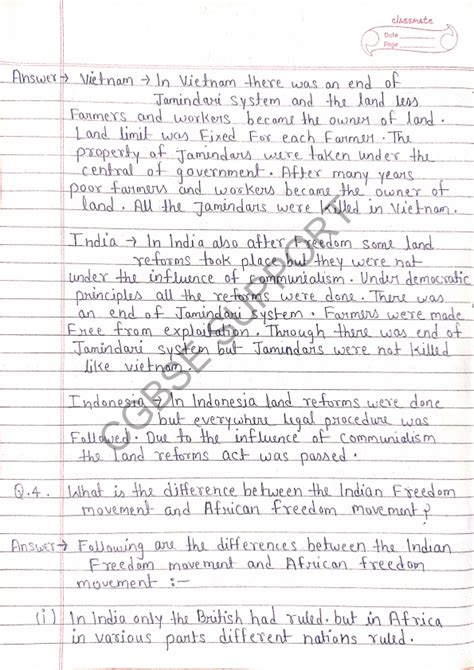 classmate
Date
Page
Answer → Vietnam → In Vietnam there was an end of
Jamindari system and the land less
Farmers and workers became the owner of land.
Land limit was Fixed For each Farmer. The
property of Jamindars were taken under the
central of government. After many years
poor farmers and workers became the owner of
land. All the Jamindars were killed in Vietnam.
India → In India also after Freedom some land
reforms took place but they were not
under the influence of communialism. Under democratic
principles all the reforms were done. There was
an end of Jamindari system. Farmers were made
Free from exploitation. Through there was end of
Jamindari system but Jamindars were not killed
like vietnam.
Indonesia → In Indonesia land reforms were done
but everywhere legal procedure was
Followed. Due to the influence of communialism
the land reforms act was passed.
Q.4. What is the difference between the Indian Freedom
movement and African freedom movement?
Answer → Following are the differences between the Indian
Freedom movement and African freedom
movement :-
(i) In India only the British had ruled. but in Africa
in various parts different nations ruled.
CGBSE SUPPORT